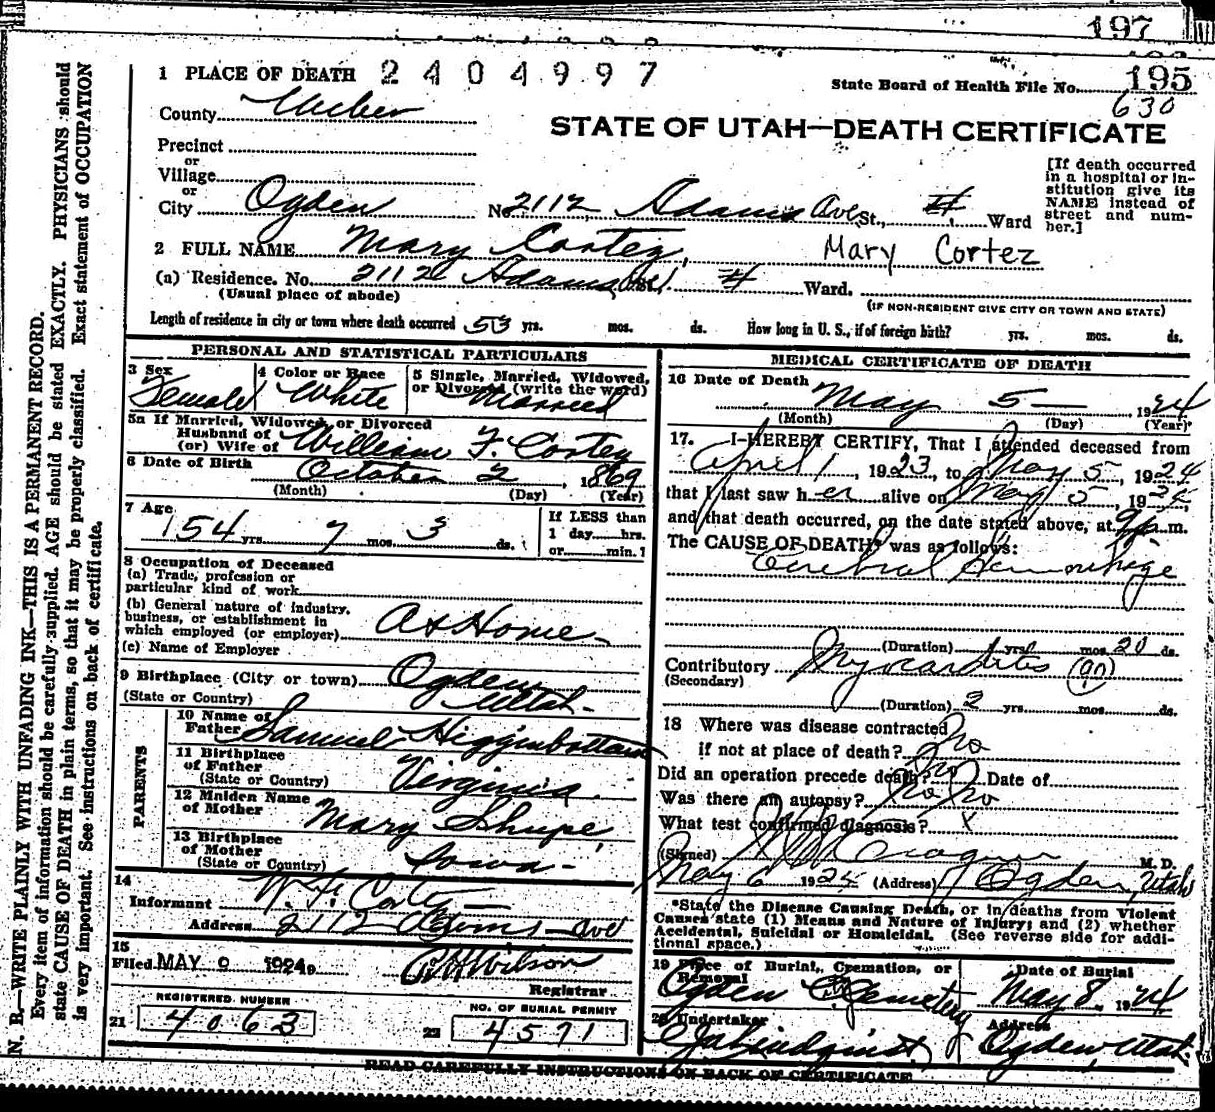 197
1 PLACE OF DEATH 2404997
State Board of Health File No. 195
630
County Weber
STATE OF UTAH—DEATH CERTIFICATE
Precinct
or
Village
or
City Ogden No. 2112 Adams Ave St., Ward
[If death occurred in a hospital or institution give its NAME instead of street and number.]
2 FULL NAME Mary Cortez, Mary Cortez
(a) Residence. No. 2112 Adams Ward.
(Usual place of abode) (IF NON-RESIDENT GIVE CITY OR TOWN AND STATE)
Length of residence in city or town where death occurred 53 yrs. mos. ds. How long in U. S., if of foreign birth? yrs. mos. ds.
PERSONAL AND STATISTICAL PARTICULARS
3 Sex 4 Color or Race 5 Single, Married, Widowed, or Divorced (write the word)
Female White Married
5a If Married, Widowed, or Divorced
Husband of
(or) Wife of William F. Cortez
6 Date of Birth October 2, 1869
(Month) (Day) (Year)
7 Age
54 yrs. 7 mos. 3 ds.
If LESS than
1 day....hrs.
or....min.?
8 Occupation of Deceased
(a) Trade, profession or
particular kind of work
(b) General nature of industry,
business, or establishment in
which employed (or employer) At Home
(c) Name of Employer
9 Birthplace (City or town) Ogden
(State or Country) Utah
PARENTS
10 Name of
Father Samuel Higginbottam
11 Birthplace
of Father
(State or Country) Virginia
12 Maiden Name
of Mother Mary Shupe
13 Birthplace
of Mother
(State or Country) Iowa
14
Informant W. F. Cortez
Address 2112 Adams Ave
15
Filed MAY 9 1924 Wilson
Registrar
REGISTERED NUMBER
21 4063
NO. OF BURIAL PERMIT
22 4571
MEDICAL CERTIFICATE OF DEATH
16 Date of Death
May 5 1924
(Month) (Day) (Year)
17. I HEREBY CERTIFY, That I attended deceased from
April 1, 1923, to May 5, 1924
that I last saw her alive on May 5, 1924,
and that death occurred, on the date stated above, at 9 p.m.
The CAUSE OF DEATH* was as follows:
Cerebral Hemorrhage
(Duration) yrs. mos. 20 ds.
Contributory Myocarditis (90)
(Secondary)
(Duration) 2 yrs. mos. ds.
18 Where was disease contracted
if not at place of death? no
Did an operation precede death? no Date of
Was there an autopsy? no
What test confirmed diagnosis? x
(Signed) M. D.
May 6 1924 (Address) Ogden, Utah
*State the Disease Causing Death, or in deaths from Violent
Causes state (1) Means and Nature of Injury; and (2) whether
Accidental, Suicidal or Homicidal. (See reverse side for addi-
tional space.)
19 Place of Burial, Cremation, or Removal Date of Burial
Ogden Cemetery May 8, 1924
20 Undertaker Address
Lindquist Ogden, Utah.
READ CAREFULLY INSTRUCTIONS ON BACK OF CERTIFICATE
N. B.—WRITE PLAINLY WITH UNFADING INK—THIS IS A PERMANENT RECORD.
Every item of information should be carefully supplied. AGE should be stated EXACTLY. PHYSICIANS should
state CAUSE OF DEATH in plain terms, so that it may be properly classified. Exact statement of OCCUPATION
is very important. See instructions on back of certificate.